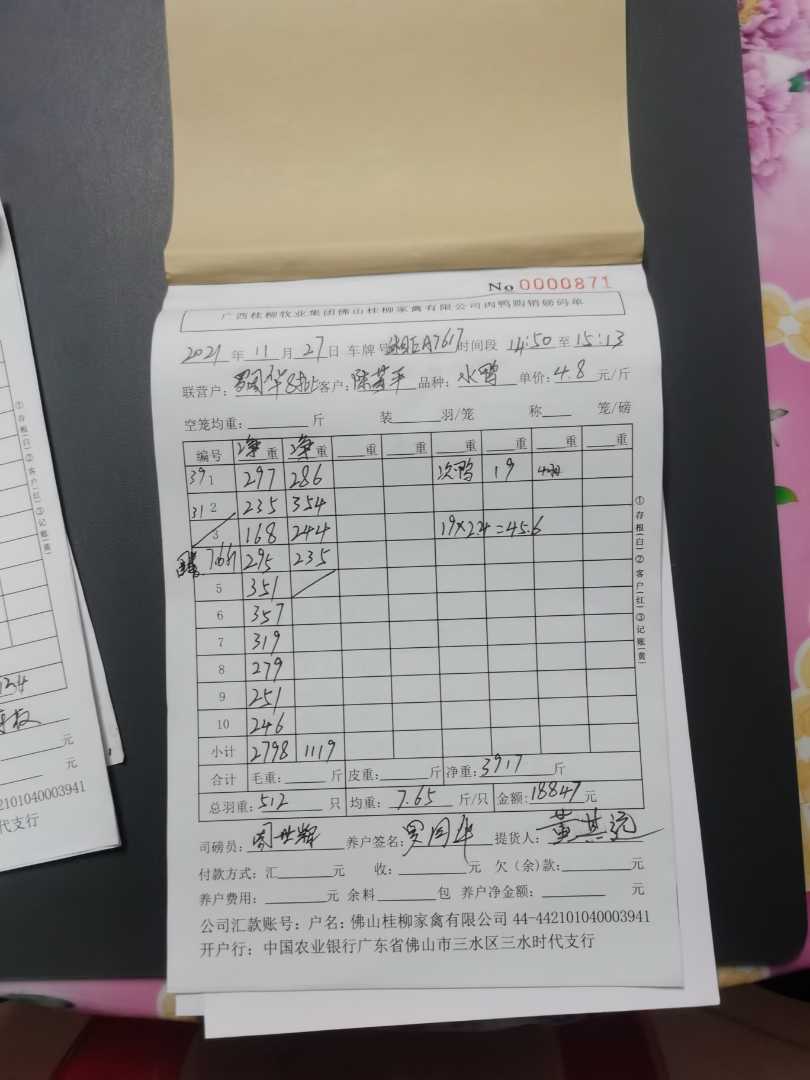 No 0000871
广西桂柳牧业集团佛山桂柳家禽有限公司肉鸭购销磅码单
2021 年 11 月 27 日 车牌号 A7617 时间段 14:50 至 15:13
联营户: 罗同华 客户: 陈 平 品种: 水鸭 单价: 4.8 元/斤
空笼均重: 斤 装 羽/笼 称 笼/磅
编号 净重 净重 重 重 重 重 重 重
39 1 297 286 次鸭 19
31 2 235 354
3 168 244 19×2.4=45.6
7.65 295 235
5 351
6 357
7 319
8 279
9 251
10 246
小计 2798 1119
合计 毛重: 斤 皮重: 斤 净重: 3917 斤
总羽重: 512 只 均重: 7.65 斤/只 金额: 18847 元
司磅员: 周世辉 养户签名: 罗同华 提货人: 黄其
付款方式: 汇 元 收: 元 欠(余)款: 元
养户费用: 元 余料 包 养户净金额: 元
公司汇款账号: 户名: 佛山桂柳家禽有限公司 44-442101040003941
开户行: 中国农业银行广东省佛山市三水区三水时代支行
①存根(白)②客户(红)③记账(黄)
①存根(白)②客户(红)③记账(黄)
元
元
2101040003941
代支行